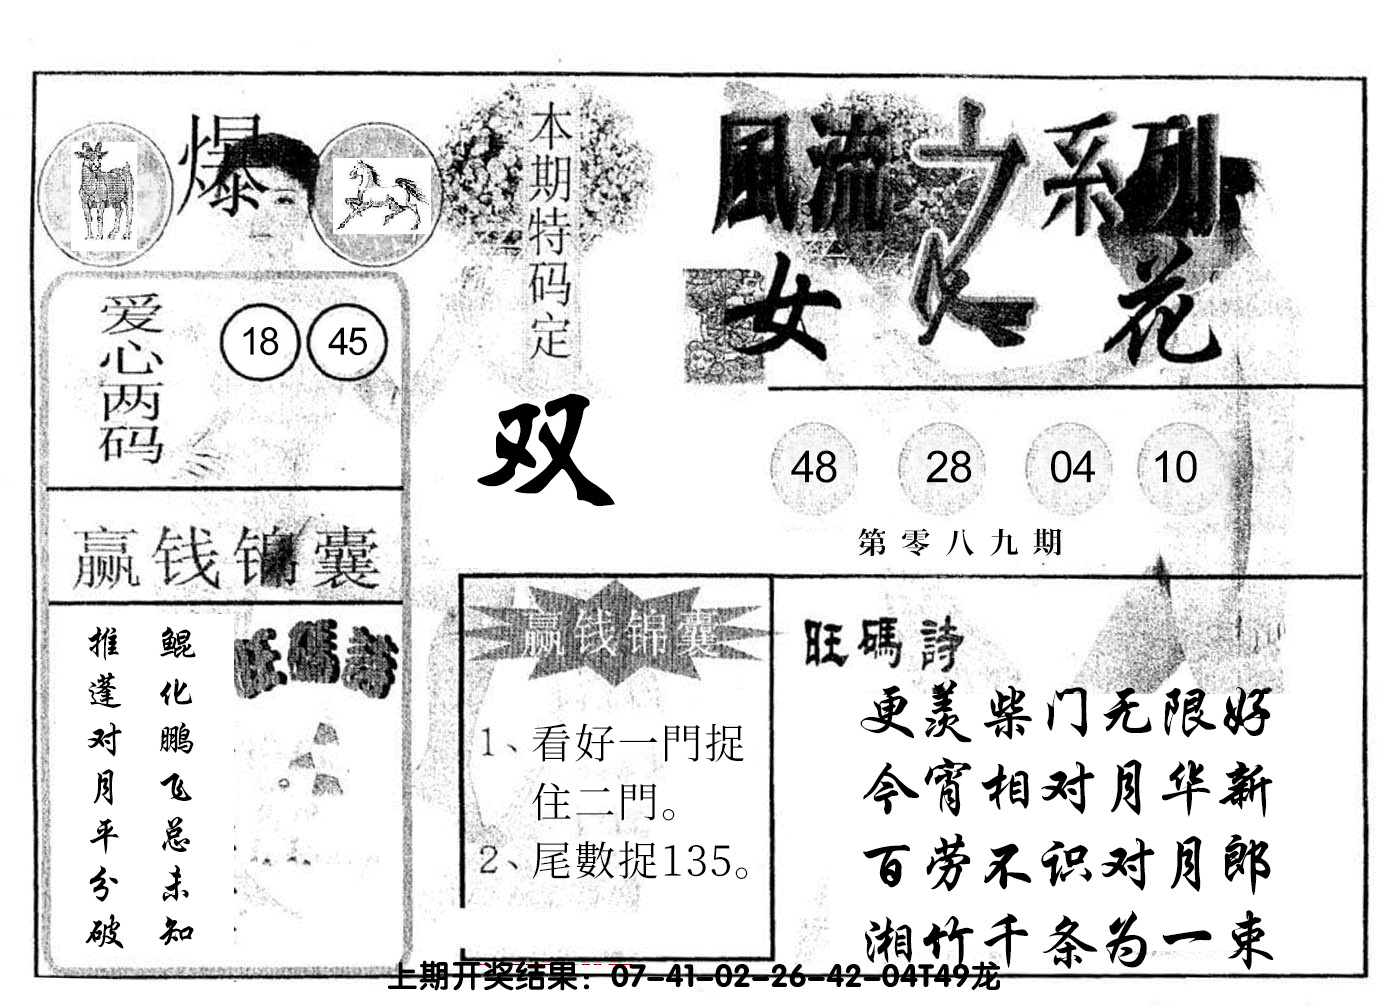 爆
本期特码定
双
風流之系列
女人花
爱心两码
18 45
48 28 04 10
第零八九期
赢钱锦囊
鲲化鹏飞总未知
推蓬对月平分破
旺碼詩
赢钱锦囊
1、看好一門捉
住二門。
2、尾數捉135。
旺碼詩
更羡柴门无限好
今宵相对月华新
百劳不识对月郎
湘竹千条为一束
上期开奖结果：07-41-02-26-42-04T49龙